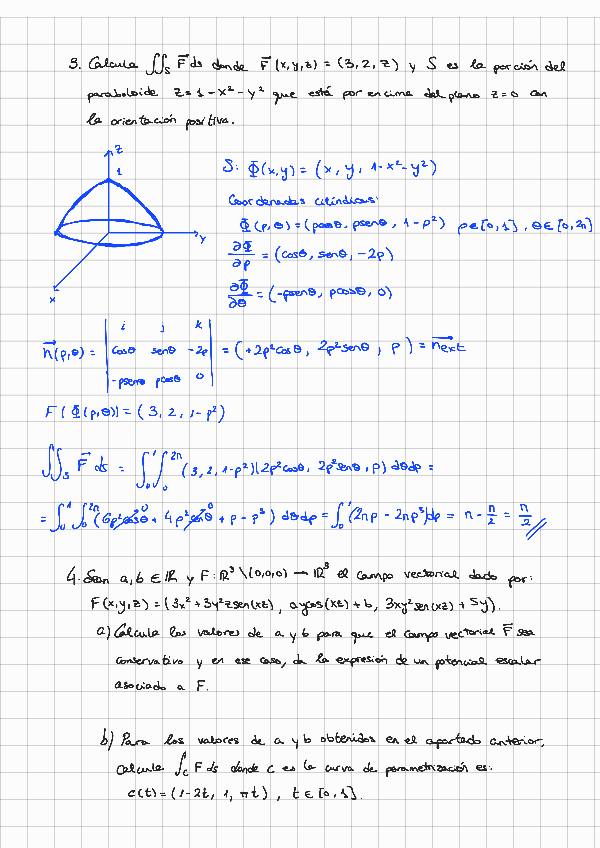 3. Calcula ∬_S F⃗ ds donde F⃗(x,y,z) = (3, 2, z) y S es la porción del
paraboloide z = 1 - x² - y² que está por encima del plano z = 0 con
la orientación positiva.
z
1
y
x
S: Φ(x,y) = (x, y, 1-x²-y²)
Coordenadas cilíndricas:
Φ(ρ,θ) = (ρcosθ, ρsenθ, 1-ρ²) ρ∈[0,1], θ∈[0,2π]
∂Φ/∂ρ = (cosθ, senθ, -2ρ)
∂Φ/∂θ = (-ρsenθ, ρcosθ, 0)
n⃗(ρ,θ) = | i j k ; cosθ senθ -2ρ ; -ρsenθ ρcosθ 0 | = (+2ρ²cosθ, 2ρ²senθ, ρ) = n⃗ext
F(Φ(ρ,θ)) = (3, 2, 1-ρ²)
∬_S F⃗ ds = ∫₀¹ ∫₀^2π (3, 2, 1-ρ²)(2ρ²cosθ, 2ρ²senθ, ρ) dθdρ =
= ∫₀¹ ∫₀^2π (6ρ²cosθ⁰ + 4ρ²senθ⁰ + ρ - ρ³) dθdρ = ∫₀¹ (2πρ - 2πρ³)dρ = π - π/2 = π/2
4. Sean a, b ∈ ℝ y F: ℝ³ \ (0,0,0) → ℝ³ el campo vectorial dado por:
F(x,y,z) = (3x² + 3y²z sen(xz), a y cos(xz) + b, 3xy² sen(xz) + 5y).
a) Calcula los valores de a y b para que el campo vectorial F⃗ sea
conservativo y en ese caso, da la expresión de un potencial escalar
asociado a F.
b) Para los valores de a y b obtenidos en el apartado anterior,
calcula ∫_C F ds donde c es la curva de parametrización es:
c(t) = (1-2t, 1, πt), t ∈ [0,1].